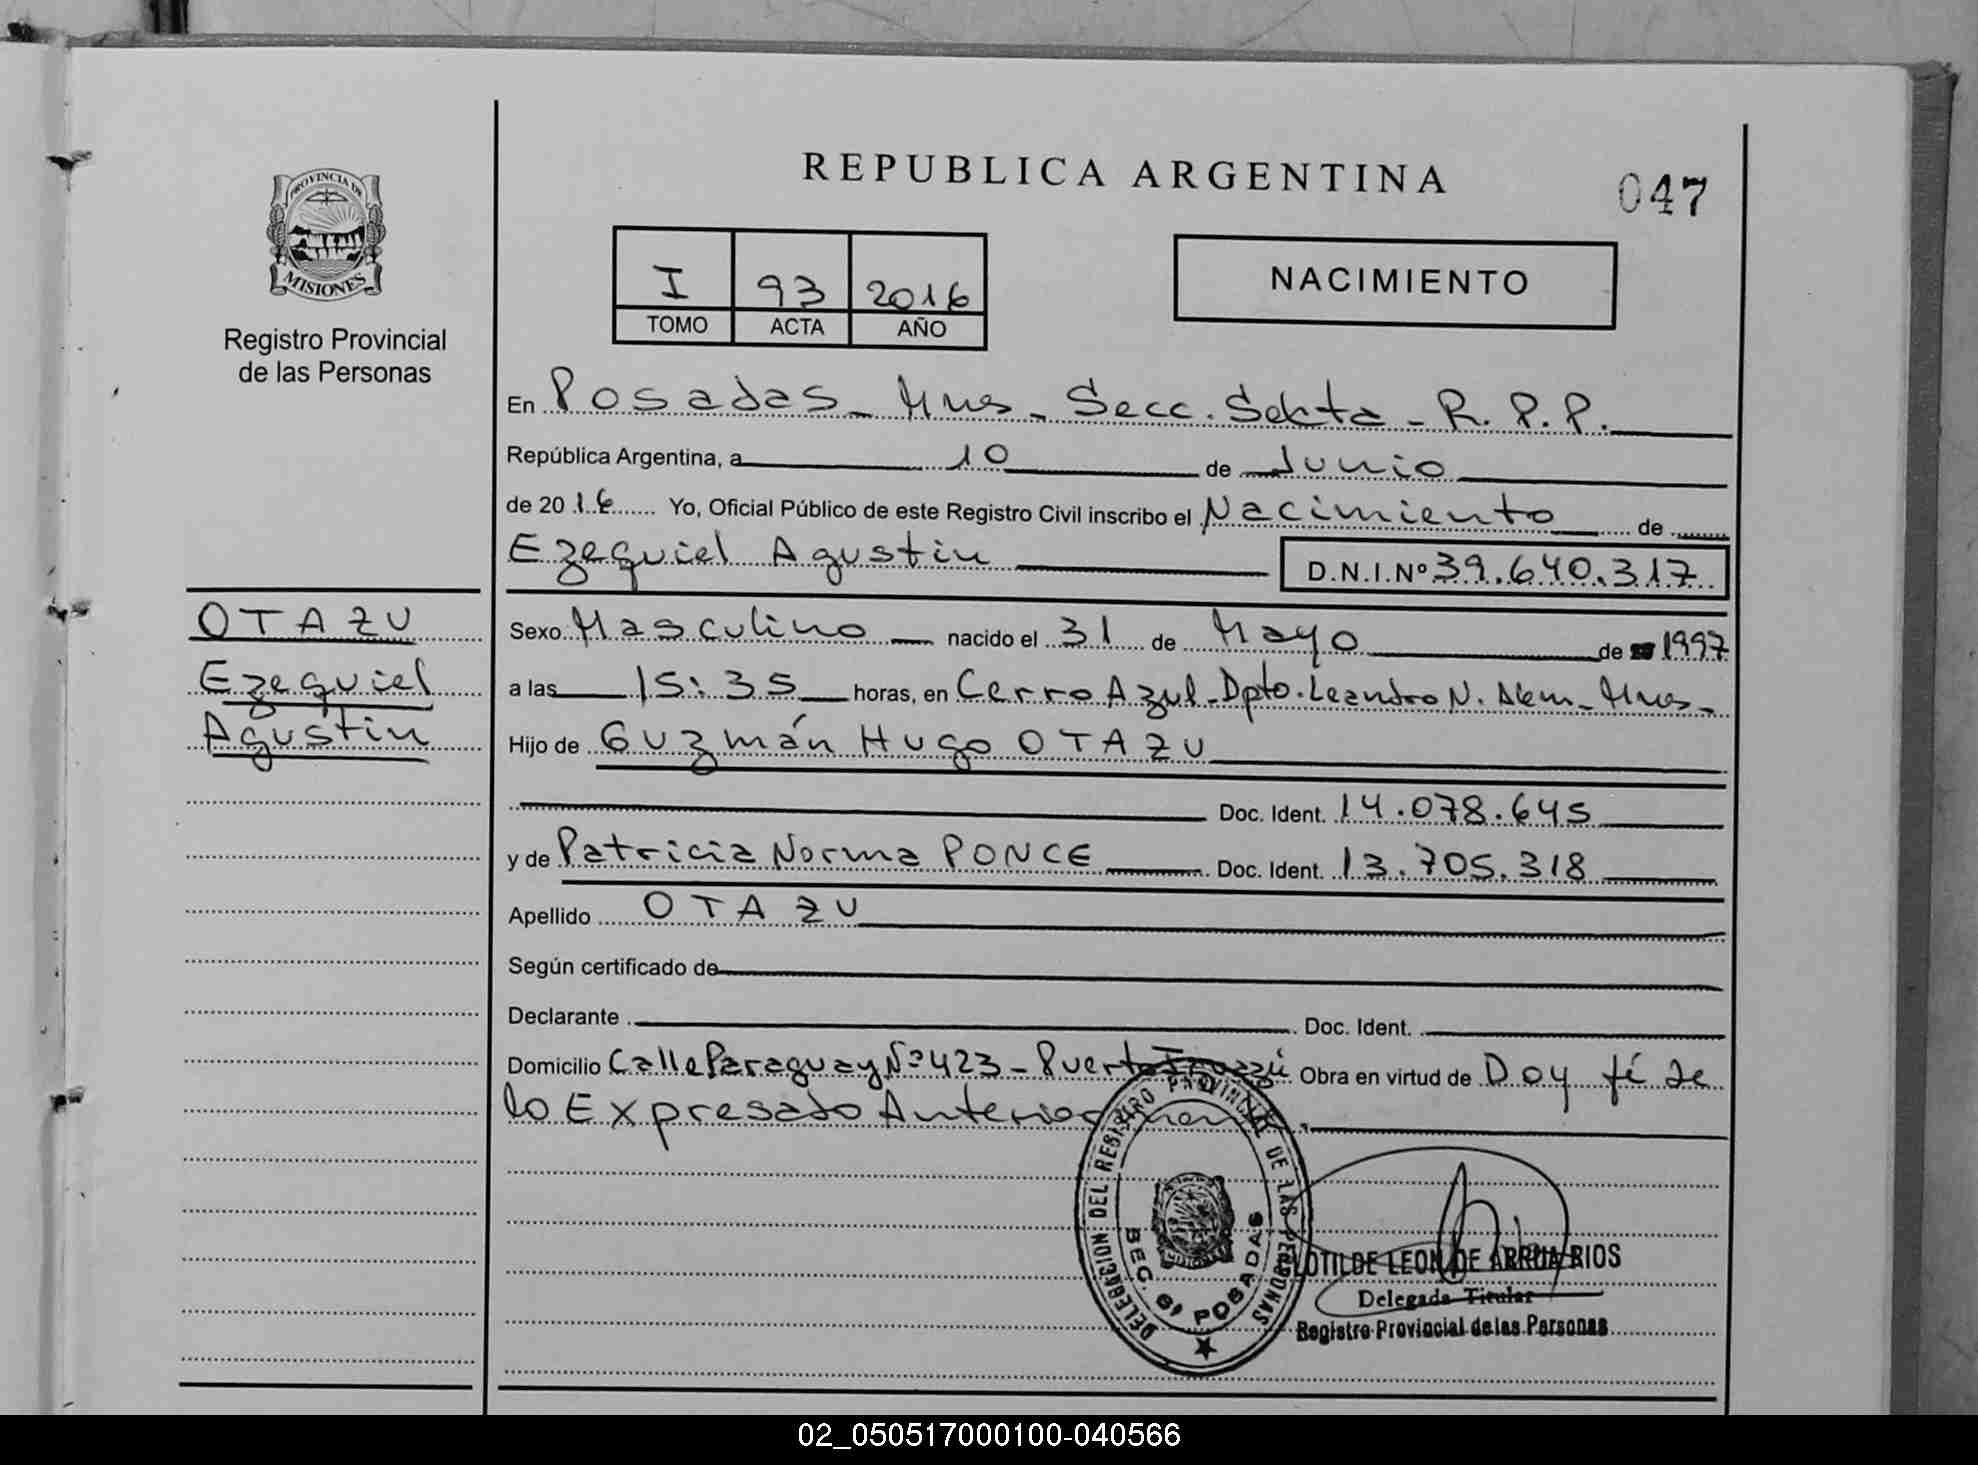 REPUBLICA ARGENTINA
047
PROVINCIA DE
MISIONES
Registro Provincial
de las Personas
I 93 2016
TOMO ACTA AÑO
NACIMIENTO
En Posadas - Mnes - Secc. Sekta - R.P.P.
República Argentina, a 10 de Junio
de 2016 Yo, Oficial Público de este Registro Civil inscribo el Nacimiento de
Ezequiel Agustin D.N.I.Nº 39.640.317
OTAZU
Ezequiel
Agustin
Sexo Masculino nacido el 31 de Mayo de 1997
a las 15:35 horas, en Cerro Azul - Dpto. Leandro N. Alem - Mnes -
Hijo de Guzmán Hugo OTAZU
Doc. Ident. 14.078.645
y de Patricia Norma PONCE Doc. Ident. 13.705.318
Apellido OTAZU
Según certificado de
Declarante Doc. Ident.
Domicilio Calle Paraguay Nº 423 - Puerto Iguazú Obra en virtud de Doy fé de
lo Expresado Anteriormente.
DELEGACION DEL REGISTRO PROVINCIAL DE LAS PERSONAS
SEC. 6ª POSADAS
CLOTILDE LEON DE ARRUA RIOS
Delegada Titular
Registro Provincial de las Personas
02_050517000100-040566